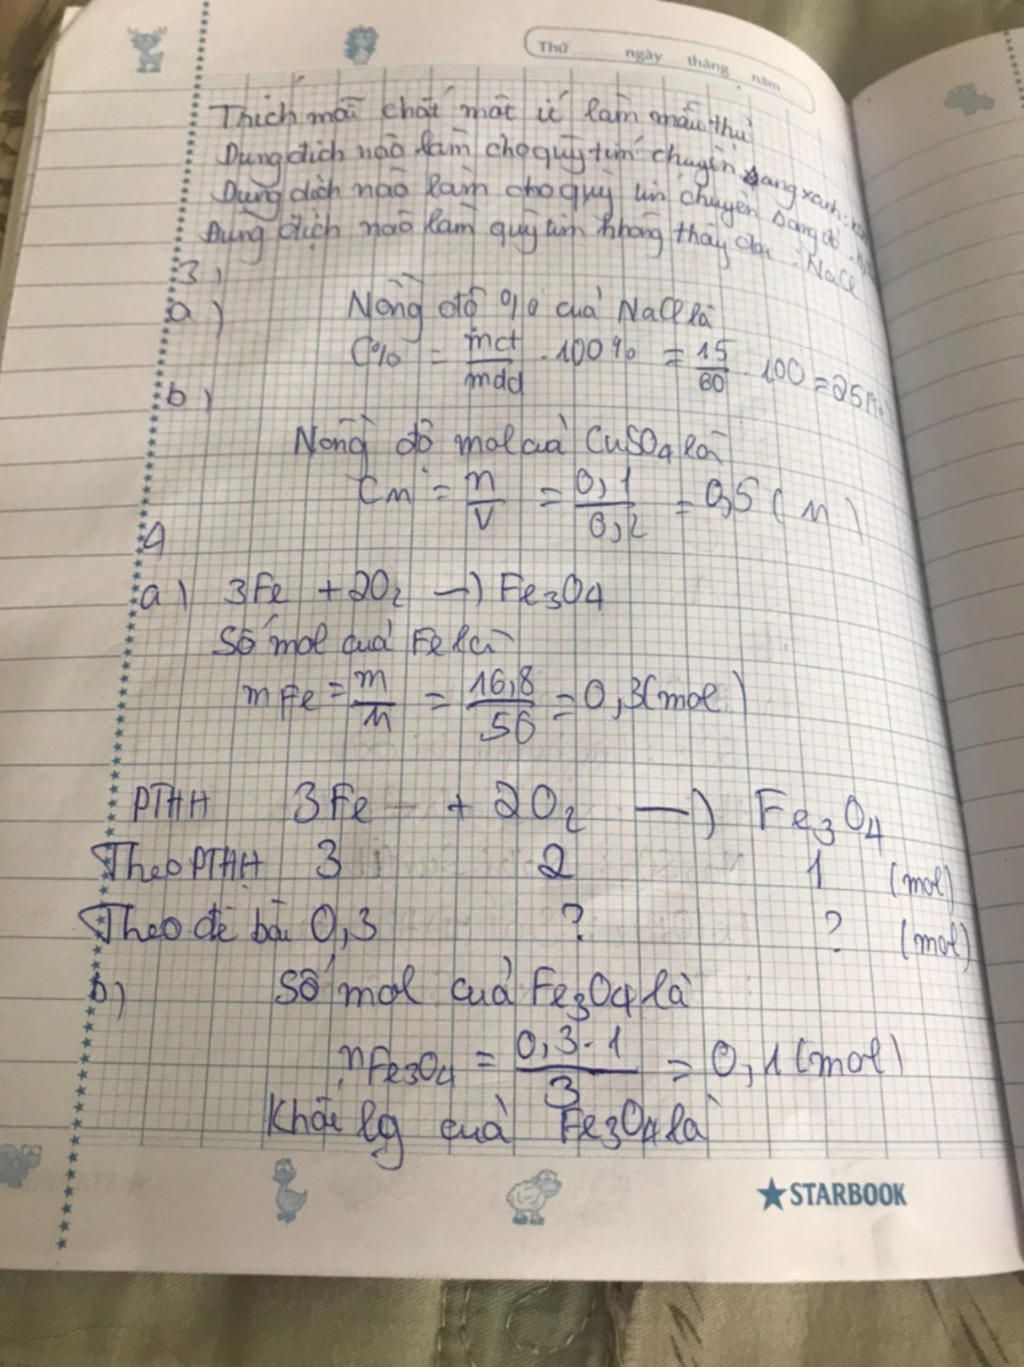 Thứ ngày tháng năm
Trích mỗi chất một ít làm mẫu thử
Dung dịch nào làm cho quỳ tím chuyển sang xanh:
Dung dịch nào làm cho quỳ tím chuyển sang đỏ
Dung dịch nào làm quỳ tím không thay đổi : NaCl
3)
a) Nồng độ % của NaCl là
C% = mct/mdd . 100% = 15/60 . 100 = 25
b)
Nồng độ mol của CuSO4 là
CM = n/V = 0,1/0,2 = 0,5 (M)
4
a) 3Fe + 2O2 → Fe3O4
Số mol của Fe là
nFe = m/M = 16,8/56 = 0,3 (mol)
PTHH 3Fe + 2O2 → Fe3O4
Theo PTHH 3 2 1 (mol)
Theo đề bài 0,3 ? ? (mol)
b) Số mol của Fe3O4 là
nFe3O4 = 0,3.1/3 = 0,1 (mol)
Khối lg của Fe3O4 là
STARBOOK